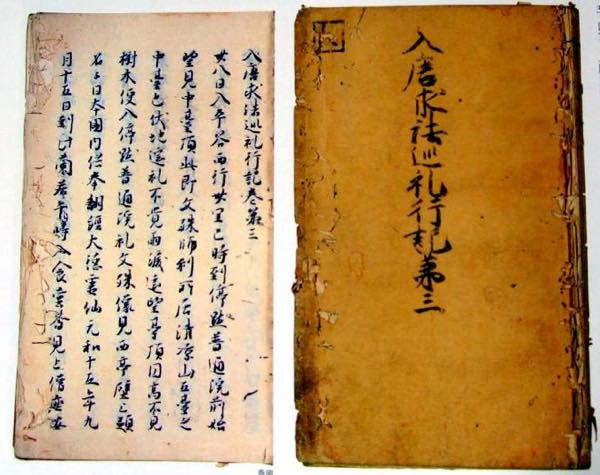 入唐求法巡礼行記第三
入唐求法巡礼行記卷第三
廿八日入平谷西行卅里巳時到停點普通院前始
望見中臺頂此即文殊師利所居清涼山五臺之
中臺也伏地遥礼不覚雨淚遥望臺頂圓高不見
樹木便入停點普通院礼文殊像見西亭壁上題
云日本國內供奉翻經大德靈仙元和十五年九
月十五日到此蘭若午時入食堂齋見上僧座安